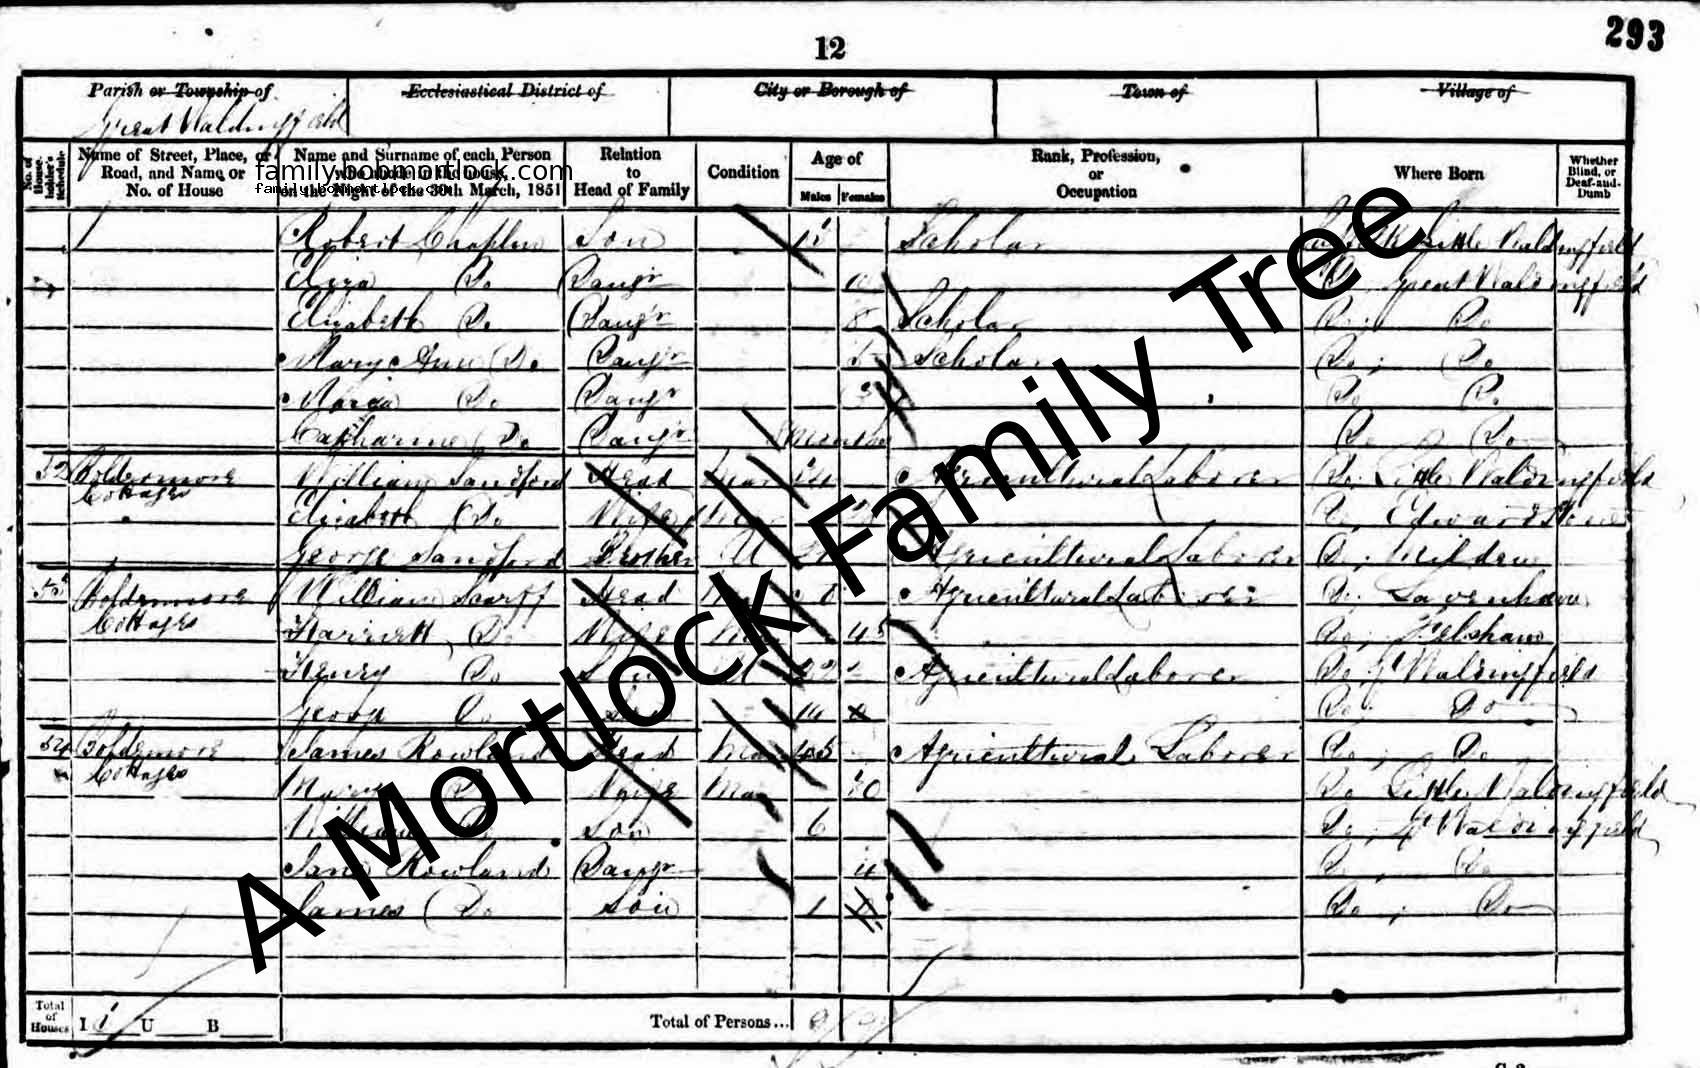 293
12
Parish or Township of Ecclesiastical District of City or Borough of Town of Village of
Great Waldingfield
No. of House-holder's Schedule
Name of Street, Place, or Road, and Name or No. of House
Name and Surname of each Person who abode in the house, on the Night of the 30th March, 1851
Relation to Head of Family
Condition
Age of
Males Females
Rank, Profession, or Occupation
Where Born
Whether Blind, or Deaf-and-Dumb
family.bobmortlock.com
family.bobmortlock.com
Robert Chaplin Son 11 Scholar Suffolk Little Waldingfield
Eliza Do Daugr Do Great Waldingfield
Elizabeth Do Daugr 8 Scholar Do; Do
Mary Ann Do Daugr 5 Scholar Do; Do
Maria Do Daugr 3 Do Do
Catharine Do Daugr Months Do Do
52 Cottages William Sandford Head Mar Agricultural Laborer Do; Little Waldingfield
Elizabeth Do Wife Mar Do; Edwardstone
George Sandford Brother U Agricultural Laborer Do; Milden
53 Cottages William Scarff Head Mar Agricultural Laborer Do; Lavenham
Harriett Do Wife Mar 45 Do; Felsham
Henry Do Son U 22 Agricultural Laborer Do; Gt Waldingfield
George Do Son 14 Do; Do
54 Cottages James Rowland Head Mar Agricultural Laborer Do; Do
Do Wife Mar Do Little Waldingfield
William Do Son 6 Do; Gt Waldingfield
Jane Rowland Daugr 4 Do; Do
James Do Son 1 Do; Do
Total of Houses I U B Total of Persons... 9
A Mortlock Family Tree